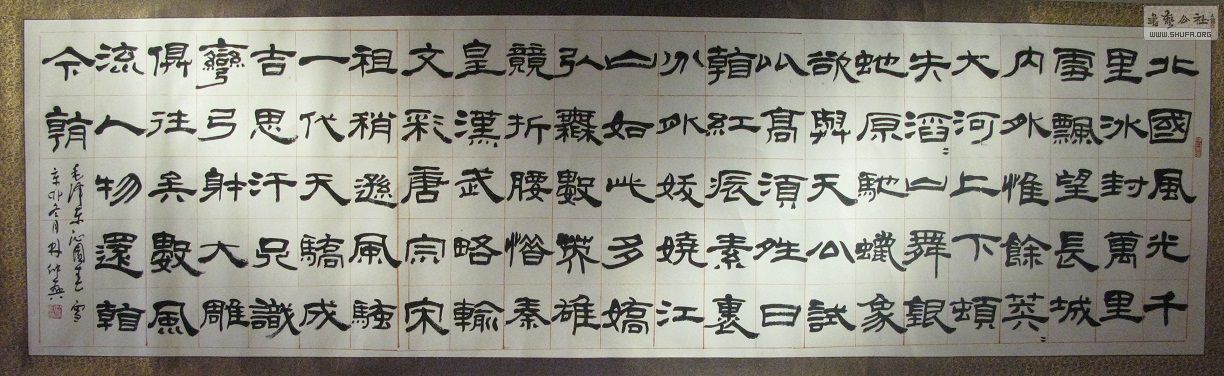 北國風光千
里冰封萬里
雪飄望長城
内外惟餘莽〻
大河上下頓
失滔〻山舞銀
蛇原馳蠟象
欲與天公試
比高須晴日
看紅裝素裹
分外妖嬈江
山如此多嬌
引無數英雄
競折腰惜秦
皇漢武略輸
文彩唐宗宋
祖稍遜風騷
一代天驕成
吉思汗只識
彎弓射大雕
俱往矣數風
流人物還看
今朝
毛澤東沁園春雪
辛卯冬月林仲興
書藝公社
WWW.SHUFA.ORG